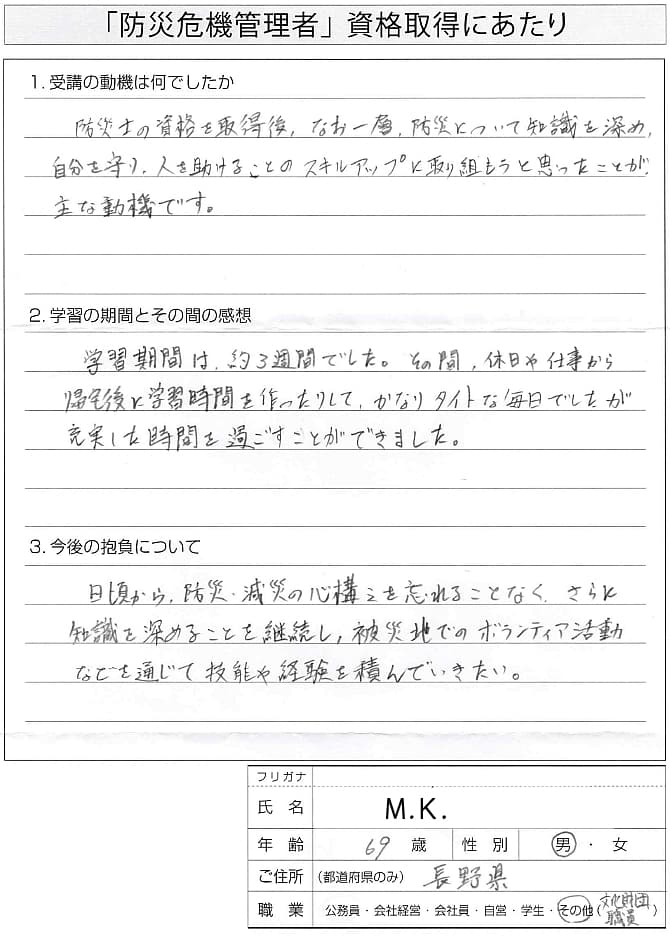 「防災危機管理者」資格取得にあたり
1. 受講の動機は何でしたか
防災士の資格を取得後、なお一層、防災について知識を深め、
自分を守り、人を助けることのスキルアップに取り組もうと思ったことが、
主な動機です。
2. 学習の期間とその間の感想
学習期間は、約3週間でした。その間、休日や仕事から
帰宅後に学習時間を作ったりして、かなりタイトな毎日でしたが
充実した時間を過ごすことができました。
3. 今後の抱負について
日頃から、防災・減災の心構えを忘れることなく、さらに
知識を深めることを継続し、被災地でのボランティア活動
などを通じて技能や経験を積んでいきたい。
フリガナ
氏 名 M.K.
年 齢 69 歳 性 別 男・女
ご住所 (都道府県のみ) 長野県
職 業 公務員・会社経営・会社員・自営・学生・その他(文化財団職員)